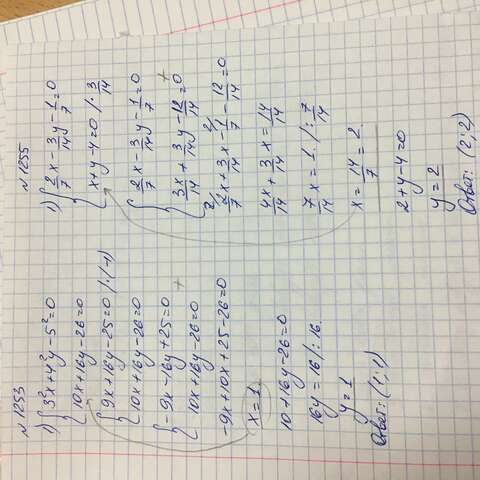 №1253
1) { 3²x+4²y-5²=0
10x+16y-26=0
{ 9x+16y-25=0 |·(-1)
10x+16y-26=0
{ -9x-16y+25=0
+
10x+16y-26=0
-9x+10x+25-26=0
x=1
10+16y-26=0
16y=16 |:16
y=1
Ответ: (1;1)
№1255
1) { 2/7x-3/14y-1/7=0
x+y-4=0 |·3/14
{ 2/7x-3/14y-1/7=0
+
3/14x+3/14y-12/14=0
2/7x+3/14x-1/7-12/14=0
4/14x+3/14x=14/14
7/14x=1 |:7/14
x=14/7=2.
2+y-4=0
y=2
Ответ: (2;2)